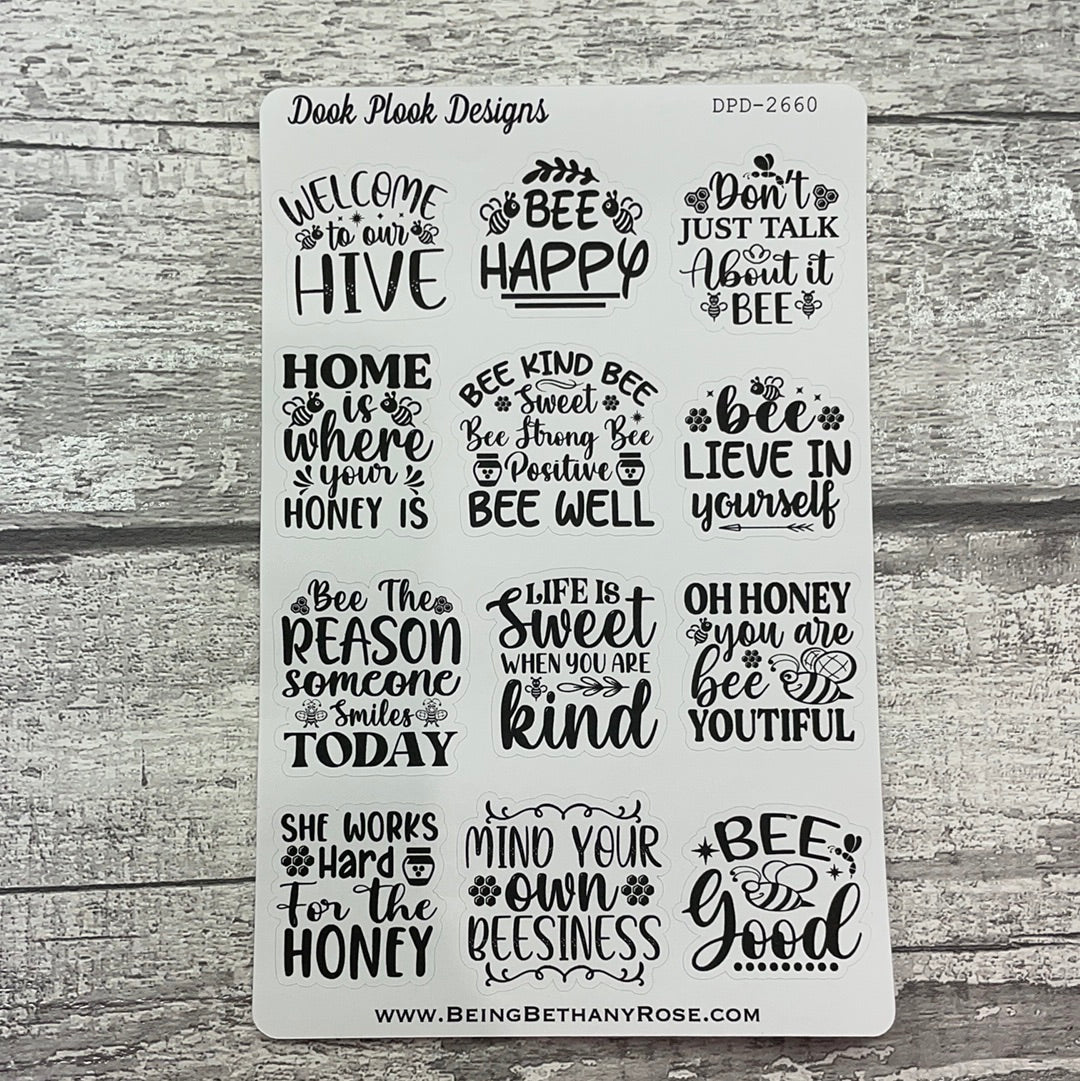 Dook Plook Designs
DPD-2660
WELCOME
to our
HIVE
BEE
HAPPY
Don't
JUST TALK
About it
BEE
HOME
is
where
your
HONEY IS
BEE KIND BEE
Sweet
Bee Strong Bee
Positive
BEE WELL
bee
LIEVE IN
yourself
Bee The
REASON
someone
Smiles
TODAY
LIFE IS
Sweet
WHEN YOU ARE
kind
OH HONEY
you are
bee
YOUTIFUL
SHE WORKS
Hard
For the
HONEY
MIND YOUR
own
BEESINESS
BEE
Good
WWW.BEINGBETHANYROSE.COM